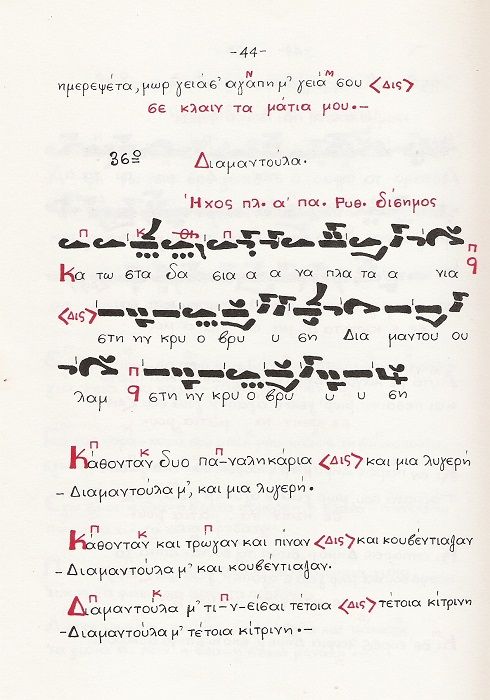 -44-
ημερεψέτα, μωρ γειάσ' αγάπη μ' γειά σου <Δις>
σε κλαιν τα μάτια μου.-
36ο Διαμαντούλα.
Ήχος πλ. α' πα. Ρυθ. δίσημος
Κα τω στα δα σια α α να πλα τα α για
<Δις> στη ην κρυ ο βρυ υ ση Δια μαντου ου
λαμ στη ην κρυ ο βρυ υ υ ση
Κάθονταν δυο πα-ναληκάρια <Δις> και μια λυγερή
- Διαμαντούλα μ', και μια λυγερή.
Κάθονταν και τρωγαν και πίναν <Δις> και κουβέντιαζαν
- Διαμαντούλα μ' και κουβέντιαζαν.
Διαμαντούλα μ' τι-ν-είσαι τέτοια <Δις> τέτοια κίτρινη
-Διαμαντούλα μ' τέτοια κίτρινη.-